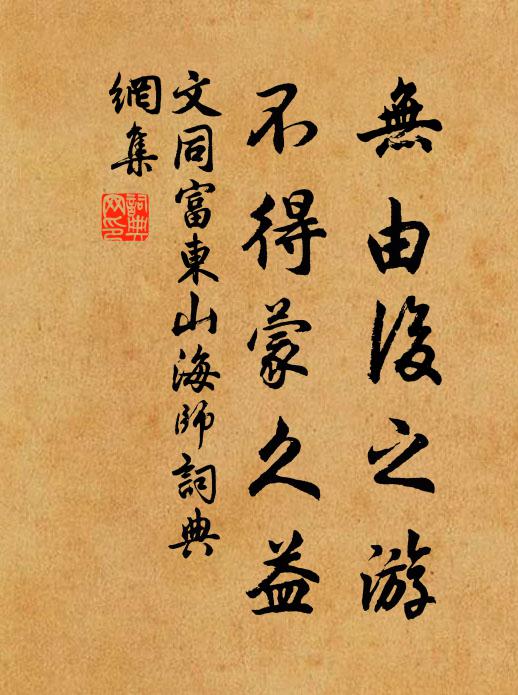 無由復之游
不得蒙久益
文同富東山海師詞典
網集
詞典
网印